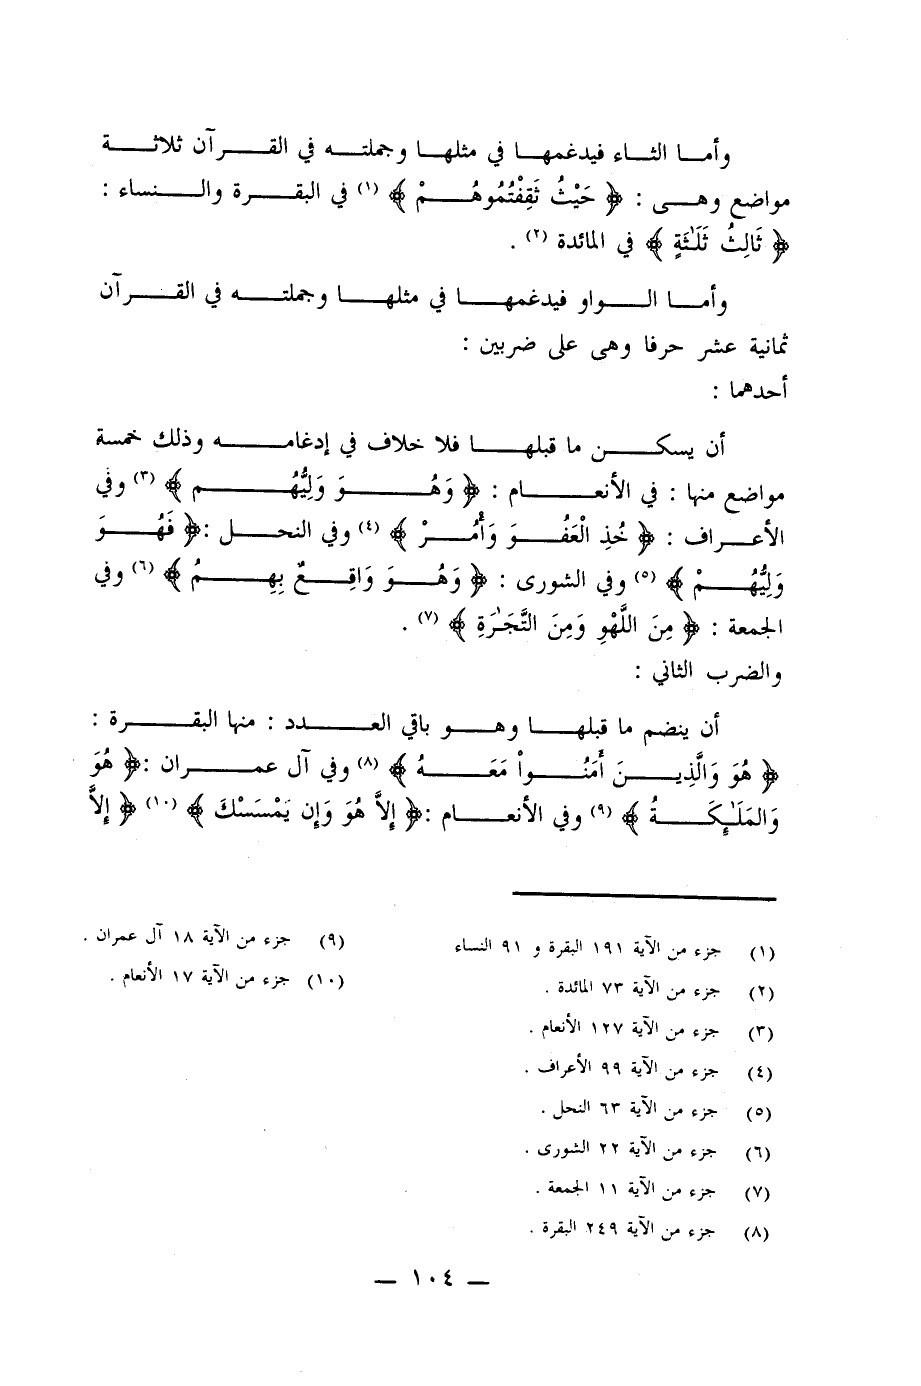 وأما الثاء فيدغمها في مثلها وجملته في القرآن ثلاثة
مواضع وهى : ﴿ حَيْثُ ثَقِفْتُمُوهُمْ ﴾ (١) في البقرة والنساء :
﴿ ثَالِثُ ثَلَٰثَةٍ ﴾ في المائدة (٢) .
وأما الواو فيدغمها في مثلها وجملته في القرآن
ثمانية عشر حرفا وهى على ضربين :
أحدهما :
أن يسكن ما قبلها فلا خلاف في إدغامه وذلك خمسة
مواضع منها : في الأنعام : ﴿ وَهُوَ وَلِيُّهُم ﴾ (٣) وفي
الأعراف : ﴿ خُذِ الْعَفُوَ وَأْمُرْ ﴾ (٤) وفي النحل :﴿ فَهُوَ
وَلِيُّهُمْ ﴾ (٥) وفي الشورى : ﴿ وَهُوَ وَاقِعٌ بِهِمُ ﴾ (٦) وفي
الجمعة : ﴿ مِنَ اللَّهْوِ وَمِنَ التَّجَٰرَةِ ﴾ (٧) .
والضرب الثاني :
أن ينضم ما قبلها وهو باقي العدد : منها البقرة :
﴿ هُوَ وَالَّذِينَ أَمَنُواْ مَعَهُ ﴾ (٨) وفي آل عمران :﴿ هُوَ
وَالمَلَٰئِكَةُ ﴾ (٩) وفي الأنعام :﴿ إِلاَّ هُوَ وَإِن يَمْسَسْكَ ﴾ (١٠) ﴿ إِلاَّ
(١) جزء من الآية ١٩١ البقرة و ٩١ النساء
(٢) جزء من الآية ٧٣ المائدة .
(٣) جزء من الآية ١٢٧ الأنعام .
(٤) جزء من الآية ٩٩ الأعراف .
(٥) جزء من الآية ٦٣ النحل .
(٦) جزء من الآية ٢٢ الشورى .
(٧) جزء من الآية ١١ الجمعة .
(٨) جزء من الآية ٢٤٩ البقرة .
(٩) جزء من الآية ١٨ آل عمران .
(١٠) جزء من الآية ١٧ الأنعام .
— ١٠٤ —